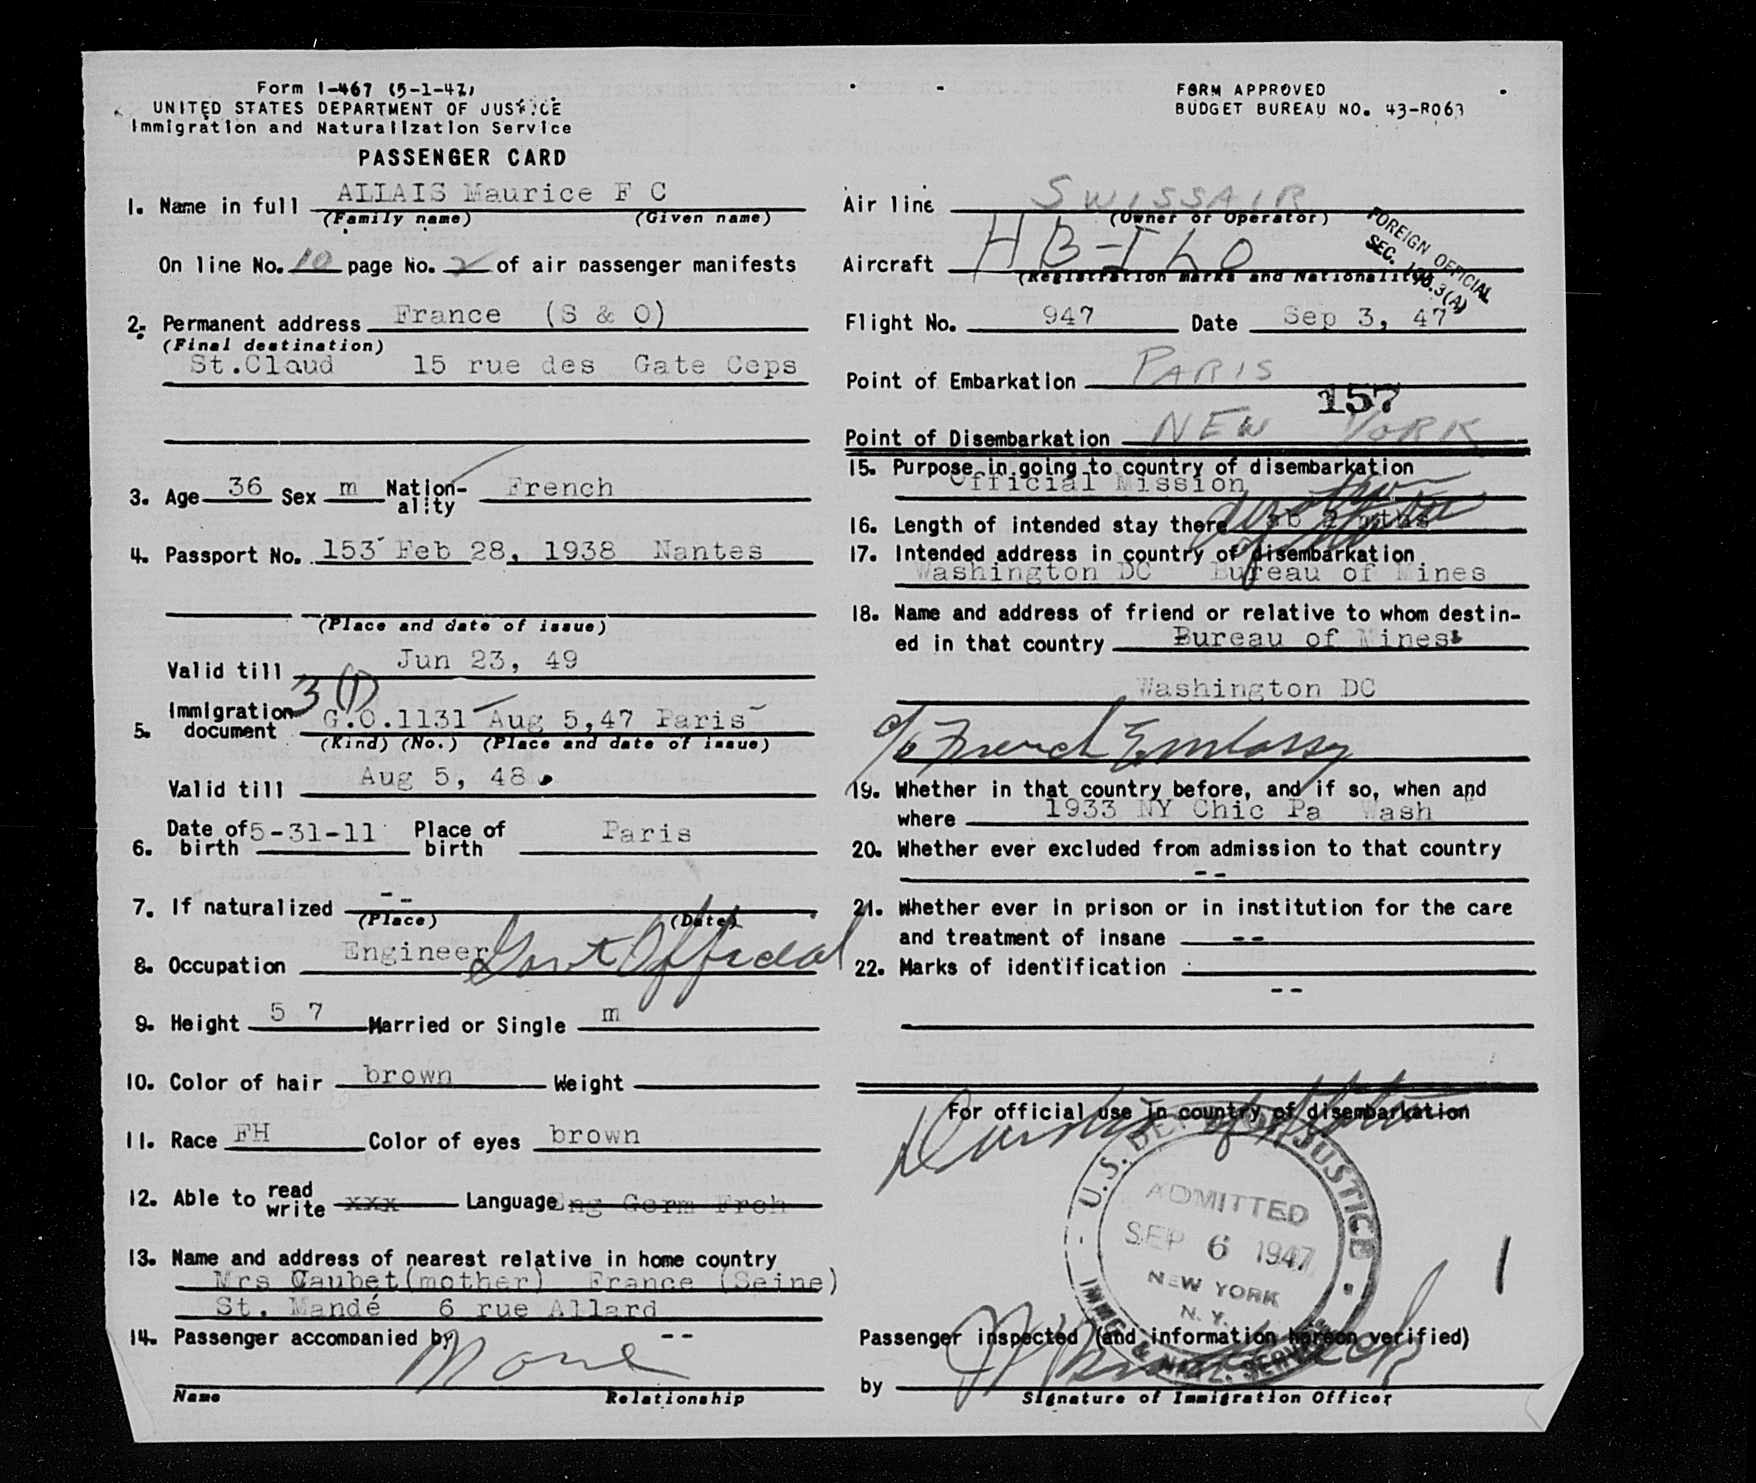 Form I-467 (5-1-47)
UNITED STATES DEPARTMENT OF JUSTICE
Immigration and Naturalization Service
PASSENGER CARD
FORM APPROVED
BUDGET BUREAU NO. 43-R063
1. Name in full ALLAIS Maurice F C
(Family name) (Given name)
On line No. 10 page No. 2 of air passenger manifests
2. Permanent address France (S & O)
(Final destination)
St.Cloud 15 rue des Gate Ceps
3. Age 36 Sex m Nation-ality French
4. Passport No. 153 Feb 28, 1938 Nantes
(Place and date of issue)
Valid till Jun 23, 49
3(1)
5. Immigration document G.O.1131 Aug 5,47 Paris
(Kind) (No.) (Place and date of issue)
Valid till Aug 5, 48
6. Date of birth 5-31-11 Place of birth Paris
7. If naturalized --
(Place) (Date)
8. Occupation Engineer Govt Official
9. Height 5 7 Married or Single m
10. Color of hair brown Weight
11. Race FH Color of eyes brown
12. Able to read write xxx Language Eng Germ Frch
13. Name and address of nearest relative in home country
Mrs Caubet(mother) France (Seine)
St. Mandé 6 rue Allard
14. Passenger accompanied by --
None
Name Relationship
Air line SWISSAIR
(Owner or Operator)
FOREIGN OFFICIAL
SEC. 3(A)
Aircraft HB-ILO
(Registration marks and Nationality)
Flight No. 947 Date Sep 3, 47
Point of Embarkation PARIS
157
Point of Disembarkation NEW YORK
15. Purpose in going to country of disembarkation
Official Mission
16. Length of intended stay there 2 mths
17. Intended address in country of disembarkation
Washington DC Bureau of Mines
18. Name and address of friend or relative to whom destin-
ed in that country Bureau of Mines
Washington DC
c/o French Embassy
19. Whether in that country before, and if so, when and
where 1933 NY Chic Pa Wash
20. Whether ever excluded from admission to that country
--
21. Whether ever in prison or in institution for the care
and treatment of insane --
22. Marks of identification
--
For official use in country of disembarkation
Duration of Status
U.S. DEPT. OF JUSTICE
ADMITTED
SEP 6 1947
NEW YORK
N. Y.
IMMIG. & NATZ. SERVICE
1
Passenger inspected (and information hereon verified)
by
Signature of Immigration Officer